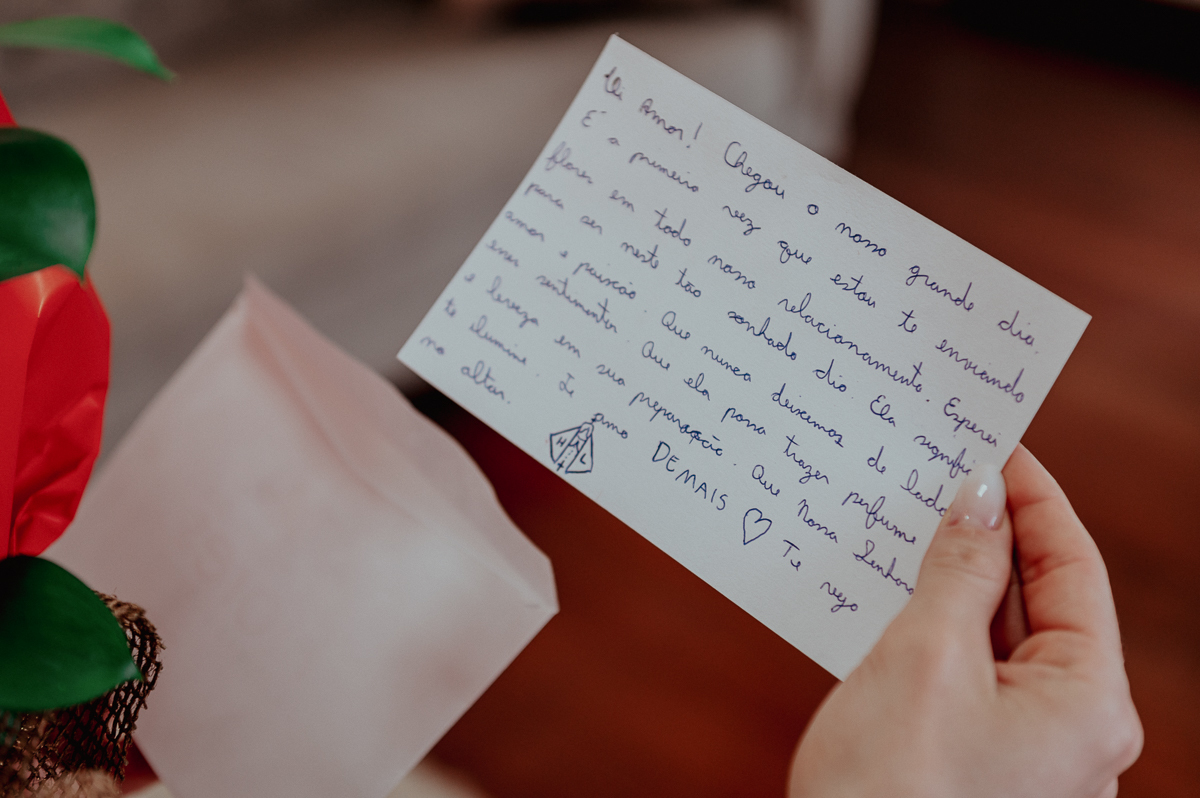 Oi Amor! Chegou o nosso grande dia.
É a primeira vez que estou te enviando
flores em todo nosso relacionamento. Esperei
para ser neste tão sonhado dia. Ela signifi
amor e paixão. Que nunca deixemos de lado
esses sentimentos. Que ela possa trazer perfume
e leveza em sua preparação. Que Nossa Senhora
te ilumine. Te amo DEMAIS ♡ Te vejo
no altar.